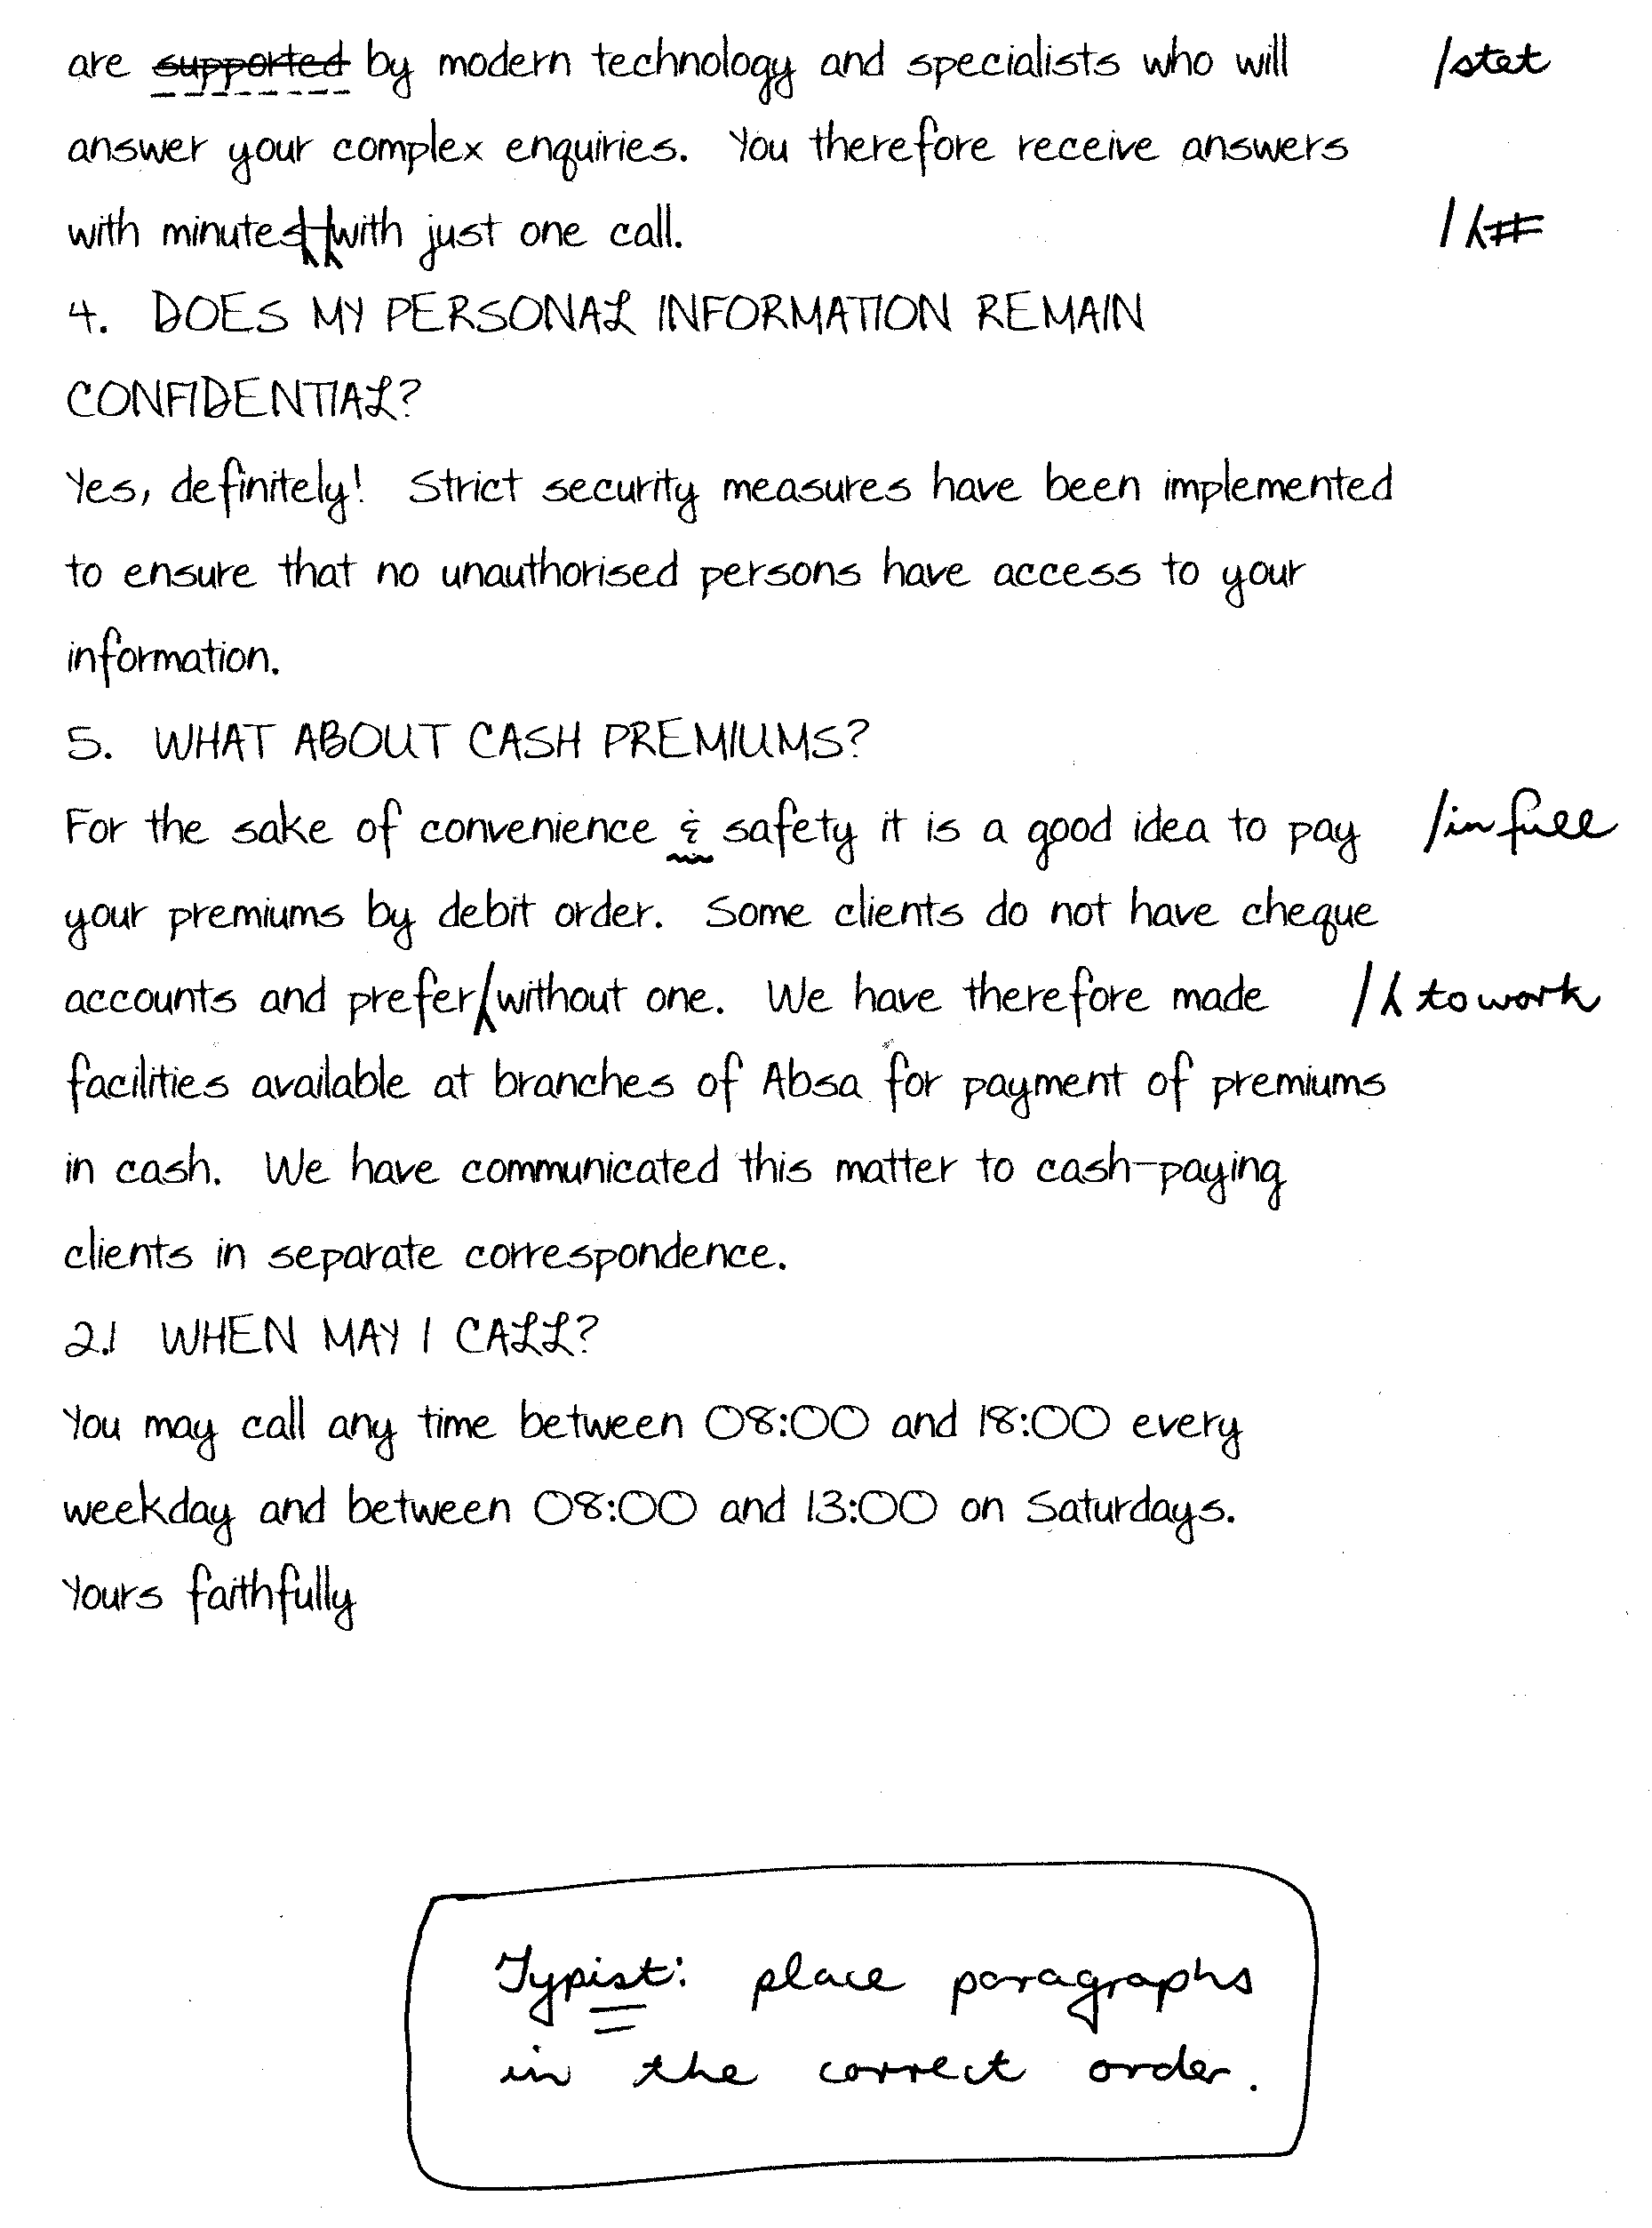 are supported by modern technology and specialists who will /stet
answer your complex enquiries. You therefore receive answers
with minutes with just one call. /⁁#
4. DOES MY PERSONAL INFORMATION REMAIN
CONFIDENTIAL?
Yes, definitely! Strict security measures have been implemented
to ensure that no unauthorised persons have access to your
information.
5. WHAT ABOUT CASH PREMIUMS?
For the sake of convenience & safety it is a good idea to pay /in full
your premiums by debit order. Some clients do not have cheque
accounts and prefer/without one. We have therefore made /⁁ to work
facilities available at branches of Absa for payment of premiums
in cash. We have communicated this matter to cash-paying
clients in separate correspondence.
2.1 WHEN MAY I CALL?
You may call any time between 08:00 and 18:00 every
weekday and between 08:00 and 13:00 on Saturdays.
Yours faithfully
Typist: place paragraphs
in the correct order.